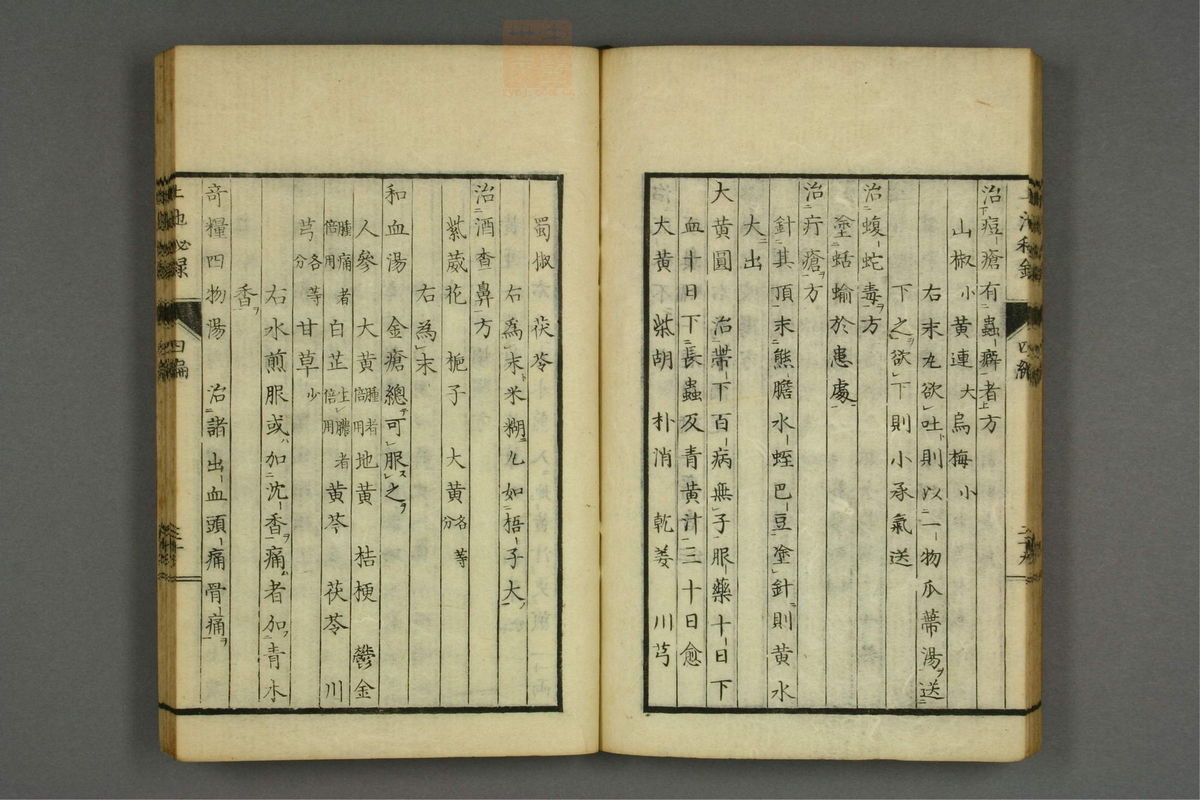 治痘瘡有蟲癖者方
山椒小黄連大烏梅小
右末丸欲吐則以一物瓜蔕湯送
下之欲下則小承氣送
治蝮蛇毒方
塗蛞蝓於患處
治疔瘡方
針其頂末熊膽水蛭巴豆塗針則黄水
大出
大黄圓 治帯下百病無子服藥十日下
血廿日下長蟲及青黄汁三十日愈
大黄 柴胡 朴消 乾姜 川芎
蜀椒 茯苓
右為末米糊丸如梧子大
治酒查鼻方
紫葳花 梔子 大黄各等分
右為末
和血湯 金瘡總可服之
人參 大黄腫者倍用地黄 桔梗 鬱金
腫痛者倍用白芷生膿者倍用黄芩 茯苓 川
芎各等分甘草少
右水煎服或加沈香痛者加青木
香
竒糧四物湯 治諸出血頭痛骨痛
四編
四編